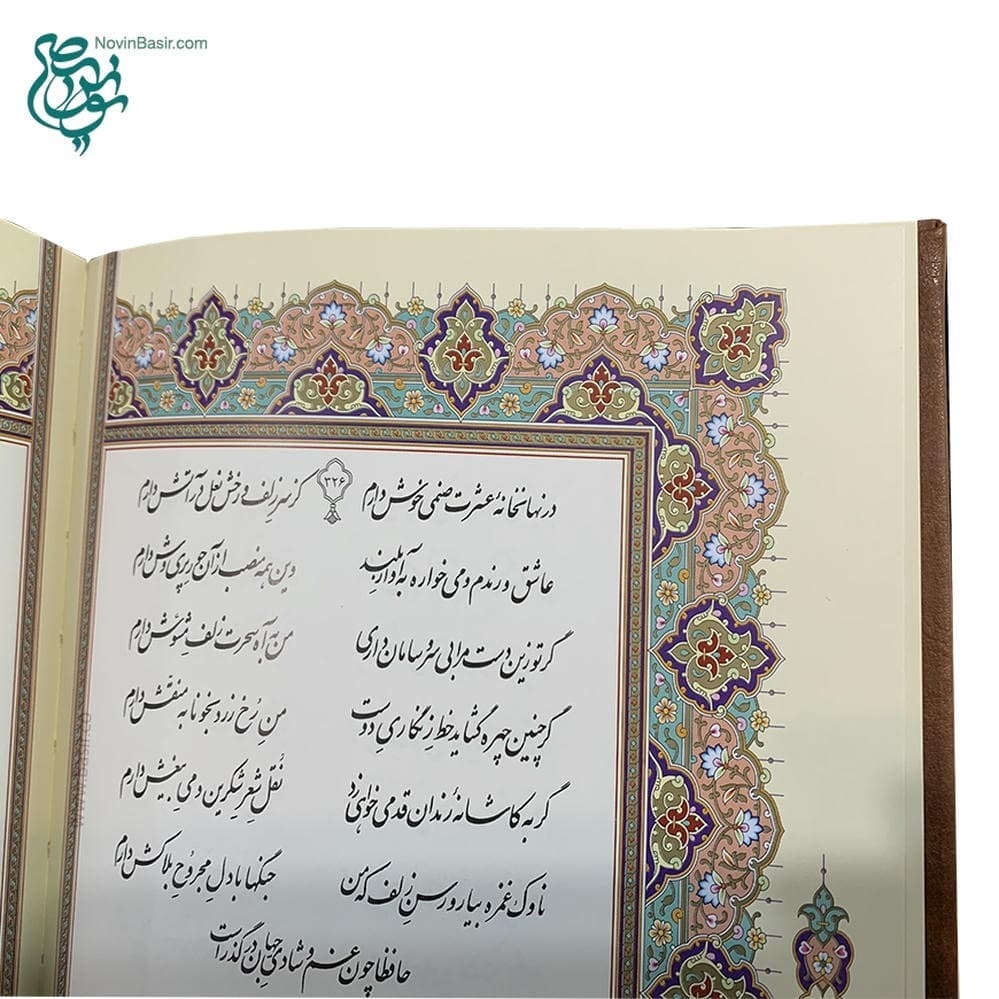 NovinBasir.com
۳۲۶
در نهانخانهٔ عشرت صنمی خوش دارم
کز سر زلف و رخش نعل در آتش دارم
عاشق و رندم و می خواره به آواز بلند
وین همه منصب از آن حور پری وش دارم
گر تو زین دست مرا بی سر و سامان داری
من به آه سحرت زلف مشوش دارم
گر چنین چهره گشاید خط زنگاری دوست
من رخ زرد بخونابه منقش دارم
گر به کاشانهٔ رندان قدمی خواهی زد
نقل شعر شکرین و می بیغش دارم
ناوک غمزه بیار و رسن زلف که من
جنگها با دل مجروح بلاکش دارم
حافظا چون غم و شادی جهان در گذر است